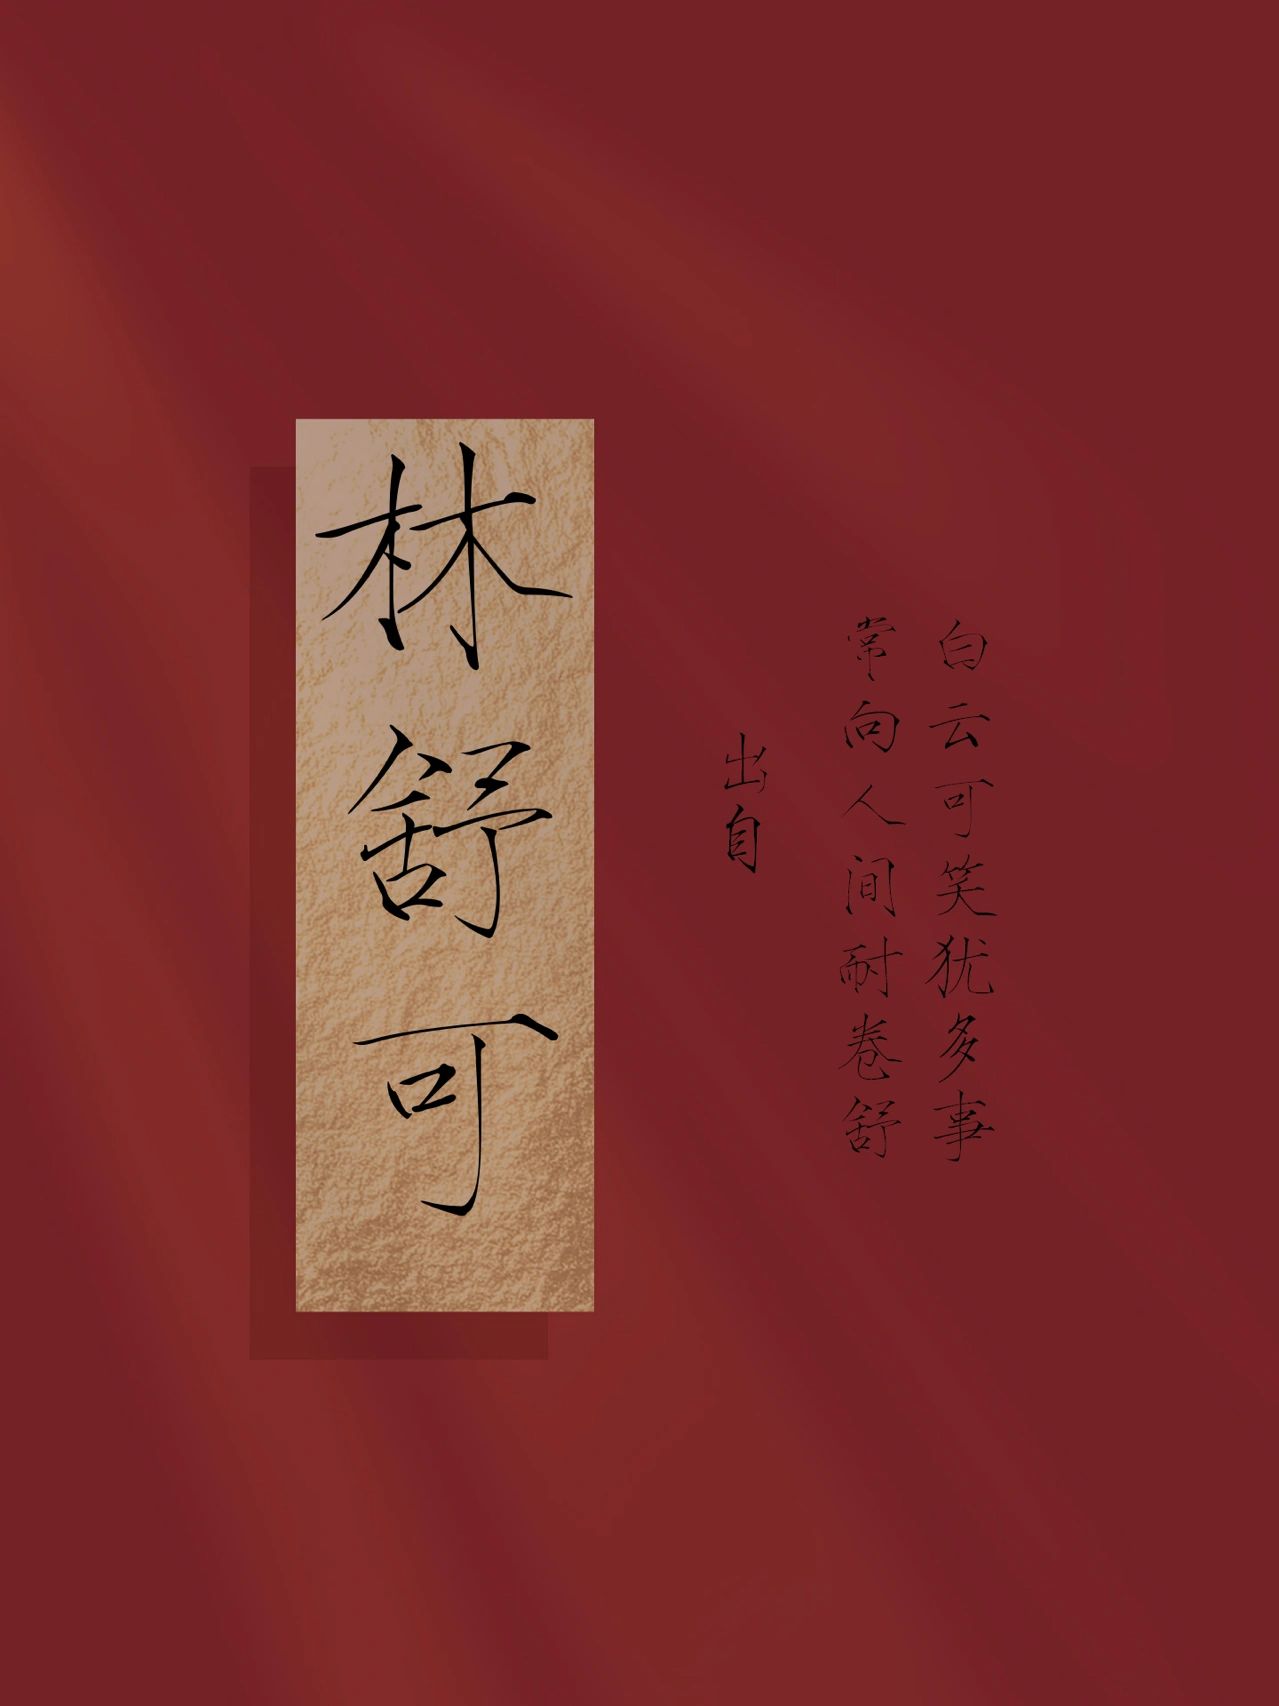 白云可笑犹多事
常向人间耐卷舒
出自
林舒可